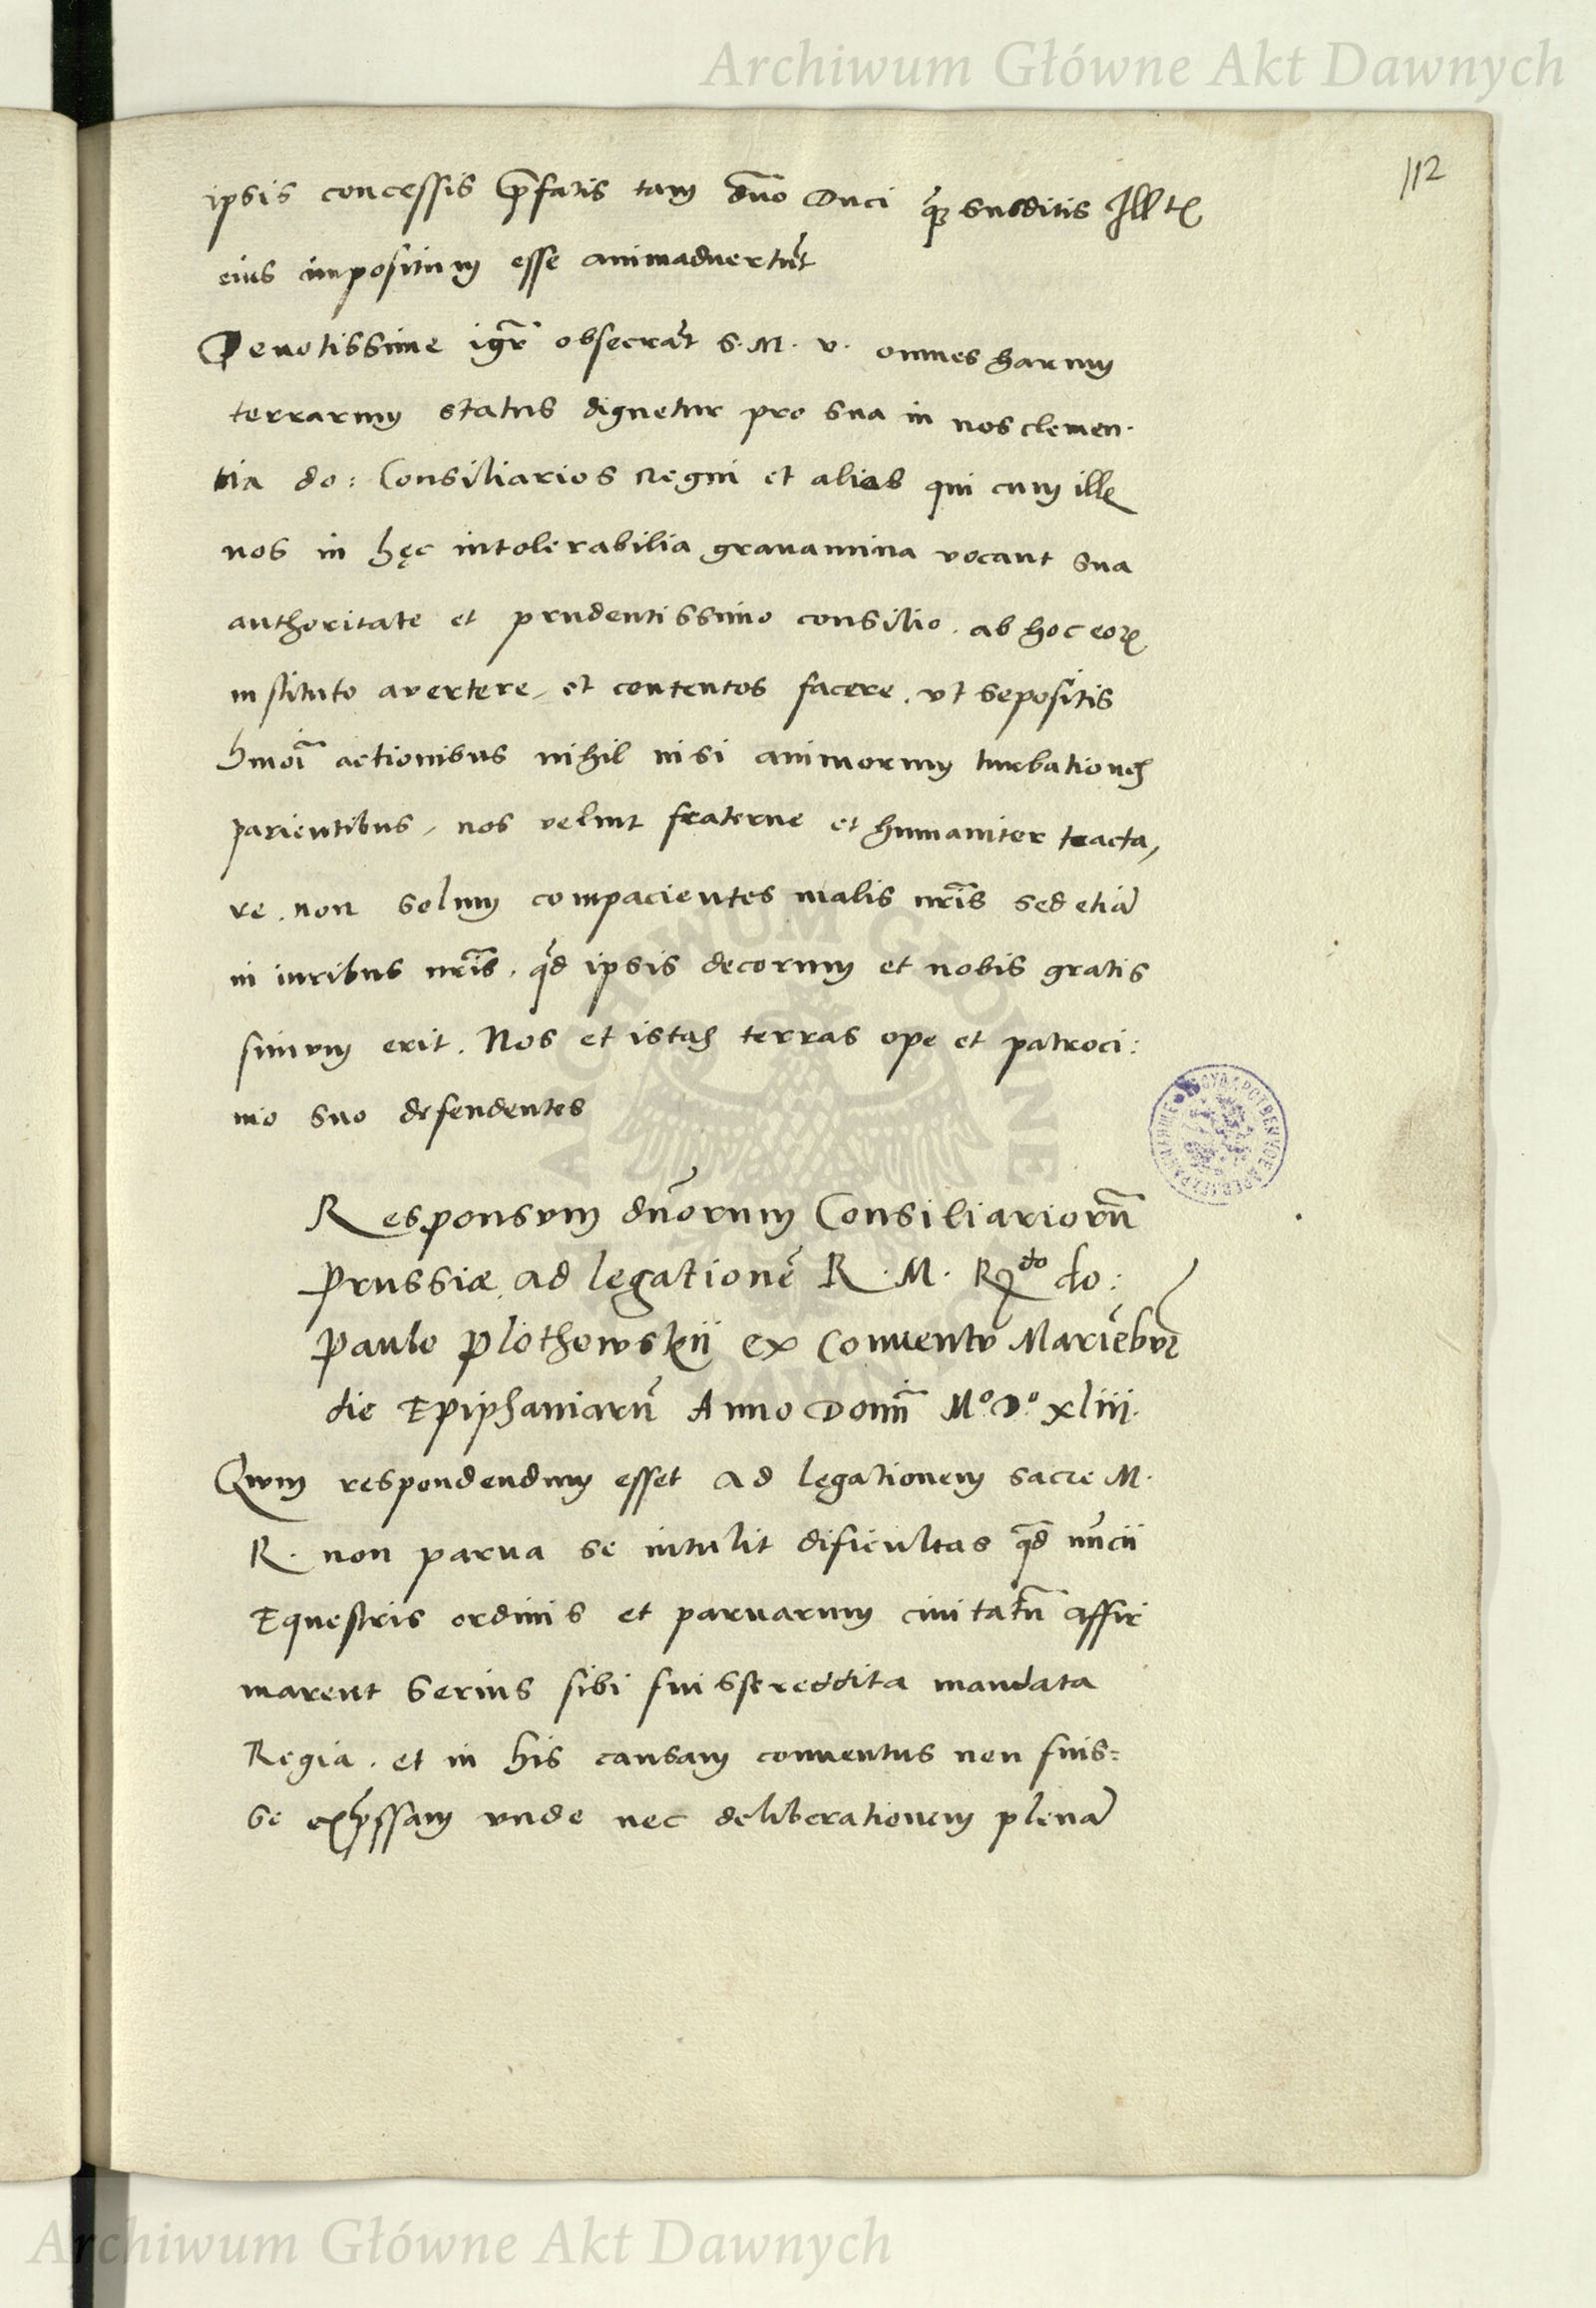 Archiwum Główne Akt Dawnych
112
ipsis concessis p̄fatis tam dn̄o Duci q̃ꝫ subditis Ill tẽ
eius impositum esse animaduertũt
Deuotissime igr̃ obsecrãt S. M. v. omnes harum
terrarum status dignetur pro sua in nos clemen·
tia do: Consiliarios Regni et alios qui cum ill̃e
nos in hęc intolerabilia grauamina vocant sua
authoritate et prudentissimo consilio. ab hoc eoꝝ
instituto avertere, et contentos facere. vt sepositis
hmoi̅ actionibus nihil nisi animorum turbationes
parientibus, nos velint fraterne et humaniter tracta,
re. non solum compacientes malis nr̅is sed etiã
in iuribus nr̅is. qd̃ ipsis decorum et nobis gratis
simum erit. Nos et istas terras ope et patroci:
nio suo defendentes
Responsum dn̄orum Consiliariorū
Prussiæ ad legationẽ R. M. R do do:
Paulo Plothowskii ex Conuentu Mariẽbur
die Epiphaniarũ Anno Domi̅ Mº Dº xliii.
Qum respondendum esset ad legationem sacre M.
R. non parua se intulit dificultas qd̄ nũcii
Equestris ordinis et paruarum ciuitatū affir
marent serius sibi fuisse reddita mandata
Regia. et in his causam conuentus non fuis=
se exp̃ssam vnde nec deliberationem plenã
ARCHIWUM GŁÓWNE
AKT DAWNYCH
Archiwum Główne Akt Dawnych